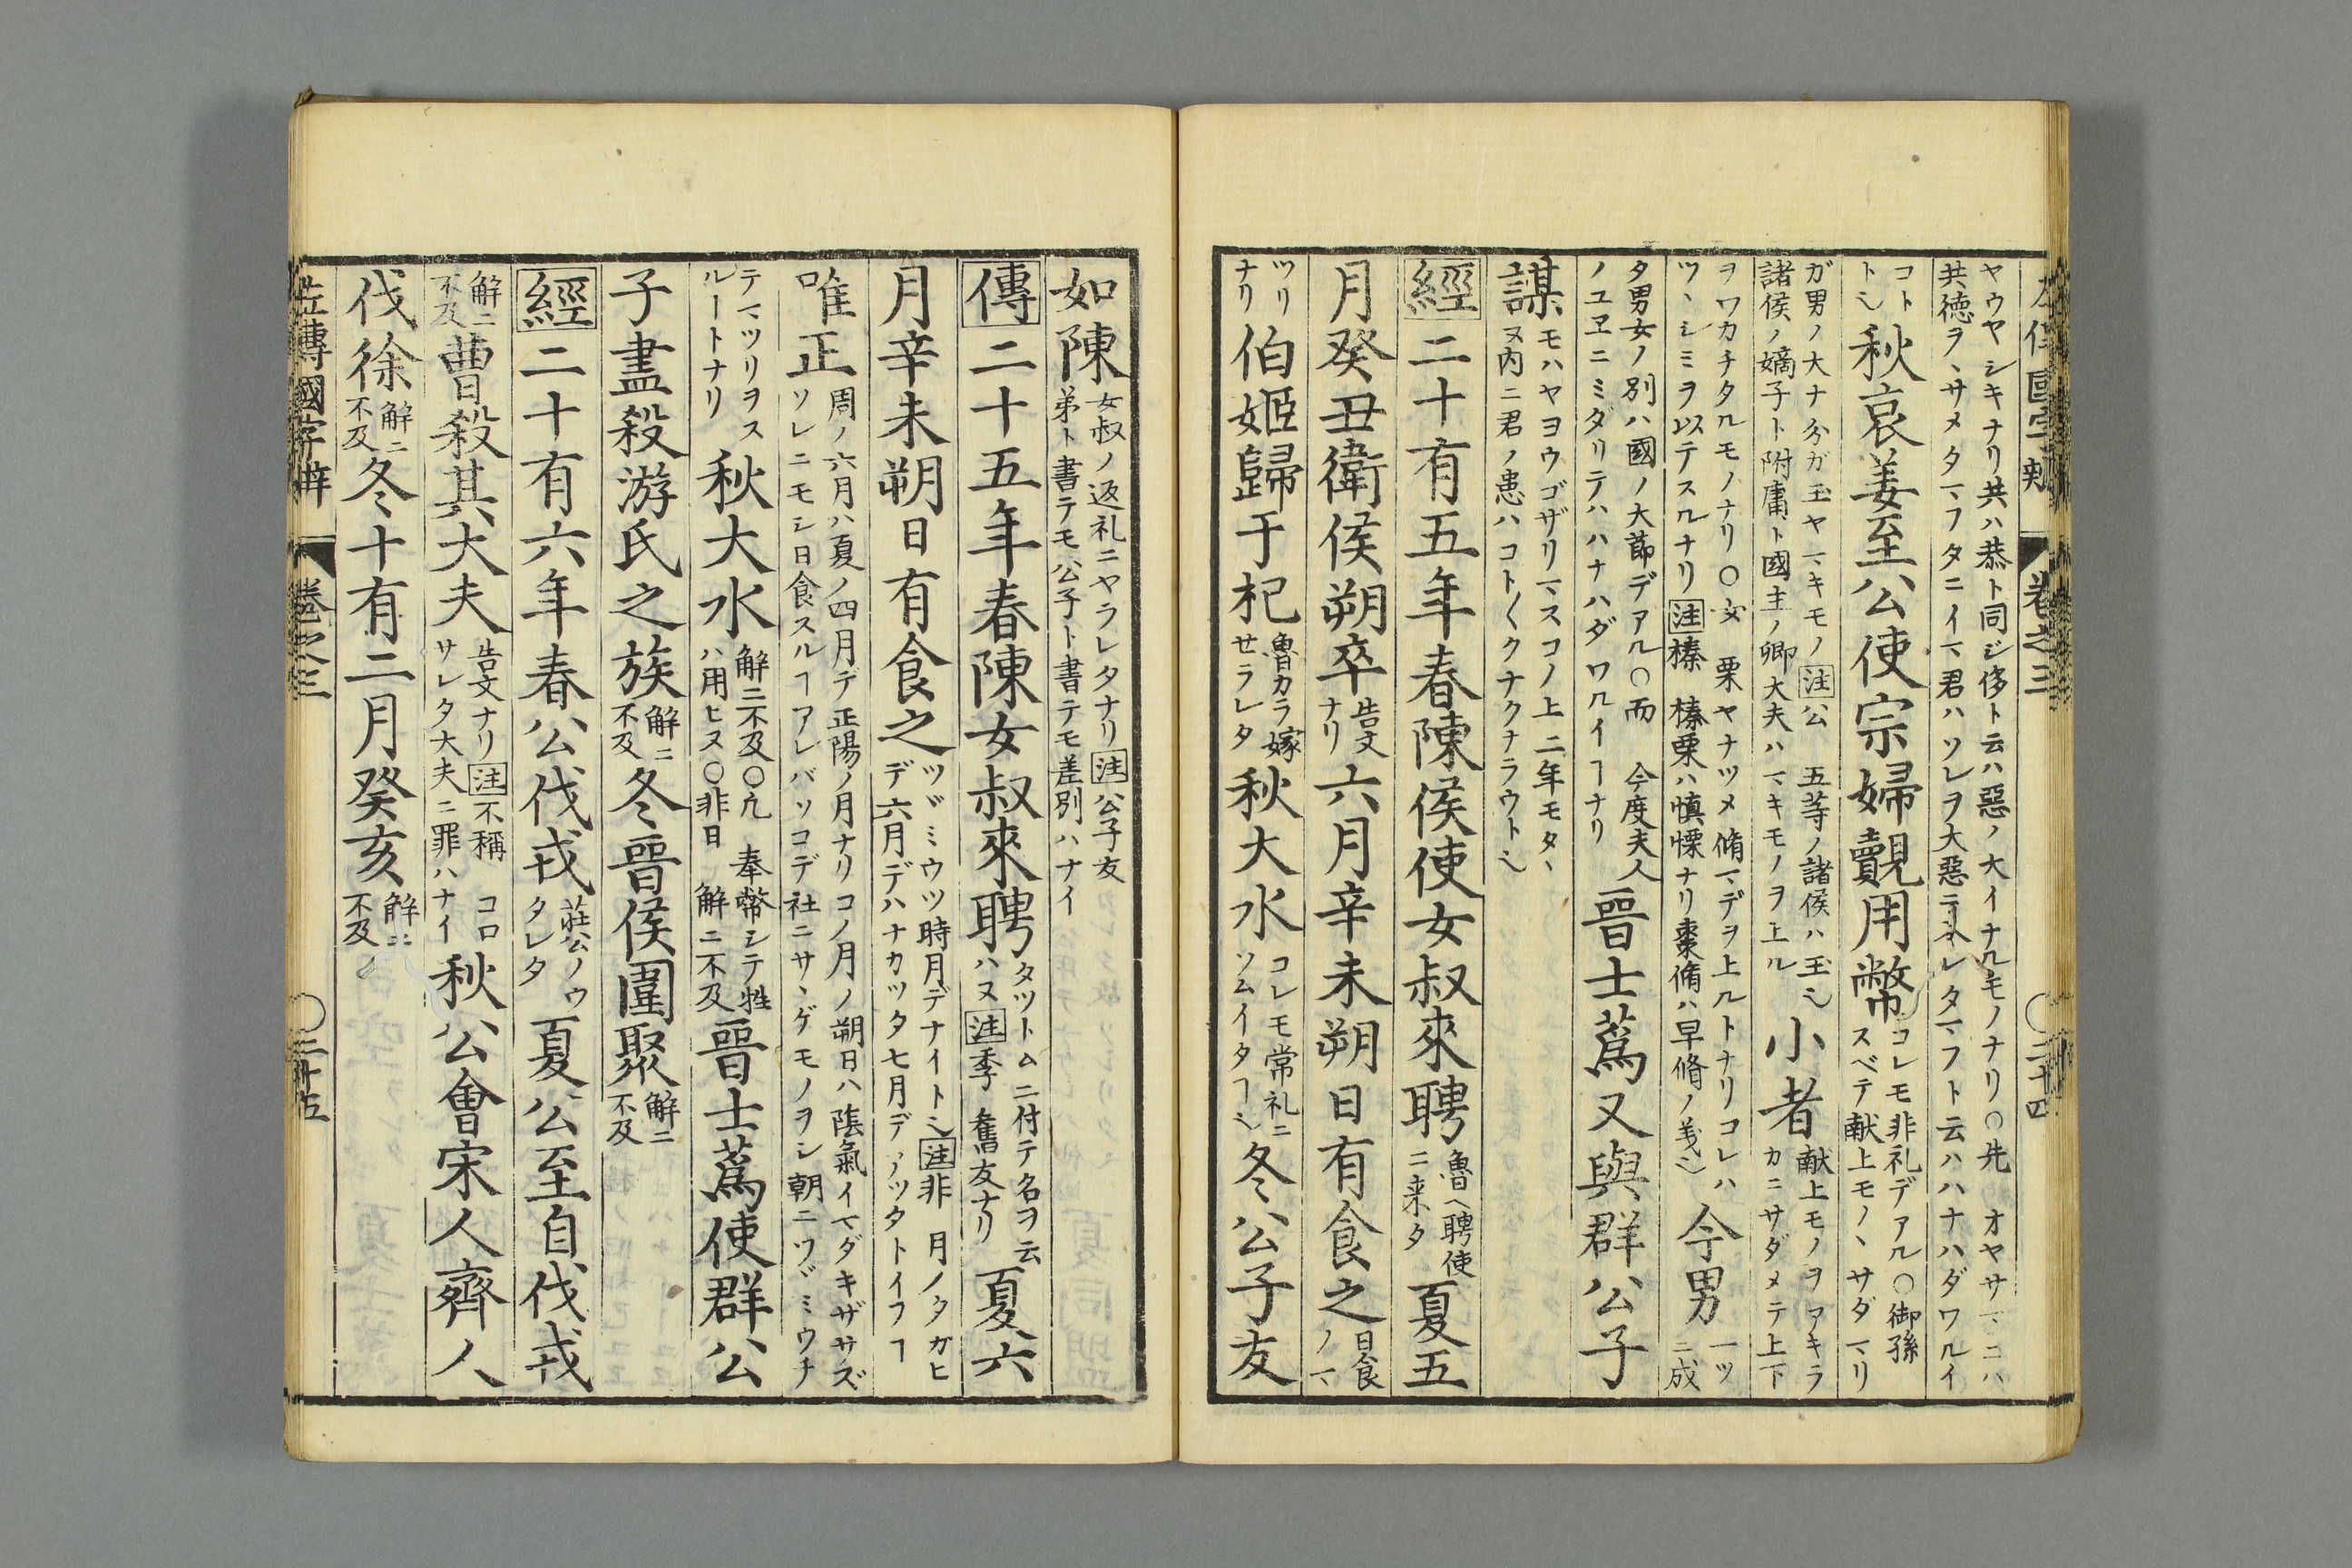 左傳國字辨 卷之三 ○二十四
ヤウヤシキナリ共ハ恭ト同ジ侈ト云ハ惡ノ大イナルモノナリ○先 オヤサマニハ
共徳ヲヽサメタマフタニイマ君ハソレヲ大惡ニ レタマフト云ハハナハダワルイ
コト
トシ
秋哀姜至公使宗婦覿用幣
コレモ非礼デアル○御孫
スベテ献上モノヽサダマリ
ガ男ノ大ナ分ガ玉ヤマキモノ注公 五等ノ諸侯ハ玉シ
諸侯ノ嫡子ト附庸ト國主ノ卿大夫ハマキモノヲ上ル
小者
献上モノヲアキラ
カニサダメテ上下
ヲワカチタルモノナリ○女 栗ヤナツメ脩マデヲ上ルトナリコレハ
ツヽシミヲ以テスルナリ注榛 榛栗ハ慎慄ナリ棗脩ハ早脩ノ義シ
今男
一ツ
ニ成
タ男女ノ別ハ國ノ大節デアル○而 今度夫人
ノユヱニミダリテハハナハダワルイヿナリ
晉士蔿又與群公子
謀
モハヤヨウゴザリマスコノ上二年モタヽ
ヌ内ニ君ノ患ハコト〱クナクナラウトシ
經二十有五年春陳侯使女叔來聘
魯ヘ聘使
ニ来タ
夏五
月癸丑衛侯朔卒
告文
ナリ
六月辛未朔日有食之
日食
ノマ
ツリ
ナリ
伯姬歸于杞
魯カラ嫁
セラレタ
秋大水
コレモ常礼ニ
ソムイタヿシ
冬公子友
如陳
女叔ノ返礼ニヤラレタナリ注公子友
弟ト書テモ公子ト書テモ差別ハナイ
傳二十五年春陳女叔來聘
タツトムニ付テ名ヲ云
ハヌ注季 舊友ナリ
夏六
月辛未朔日有食之
ツヾミウツ時月デナイトシ注非 月ノタガヒ
デ六月デハナカツタ七月デアツタトイフヿ
唯正
周ノ六月ハ夏ノ四月デ正陽ノ月ナリコノ月ノ朔日ハ陰氣イマダキザサズ
ソレニモシ日食スルヿアレバソコデ社ニサヽゲモノヲシ朝ニツヾミウチ
テマツリヲス
ルートナリ
秋大水
解ニ不及○凢 奉幣シテ牲
ハ用ヒヌ○非日 解ニ不及
晉士蔿使群公
子盡殺游氏之族
解ニ
不及
冬晉侯圍聚
解ニ
不及
經二十有六年春公伐戎
莊公ノウ
タレタ
夏公至自伐戎
解ニ
不及
曹殺其大夫
告文ナリ注不稱 コロ
サレタ大夫ニ罪ハナイ
秋公會宋人齊人
伐徐
解ニ
不及
冬十有二月癸亥
解ニ
不及ノ
左傳國字辨 卷之三 ○二十五